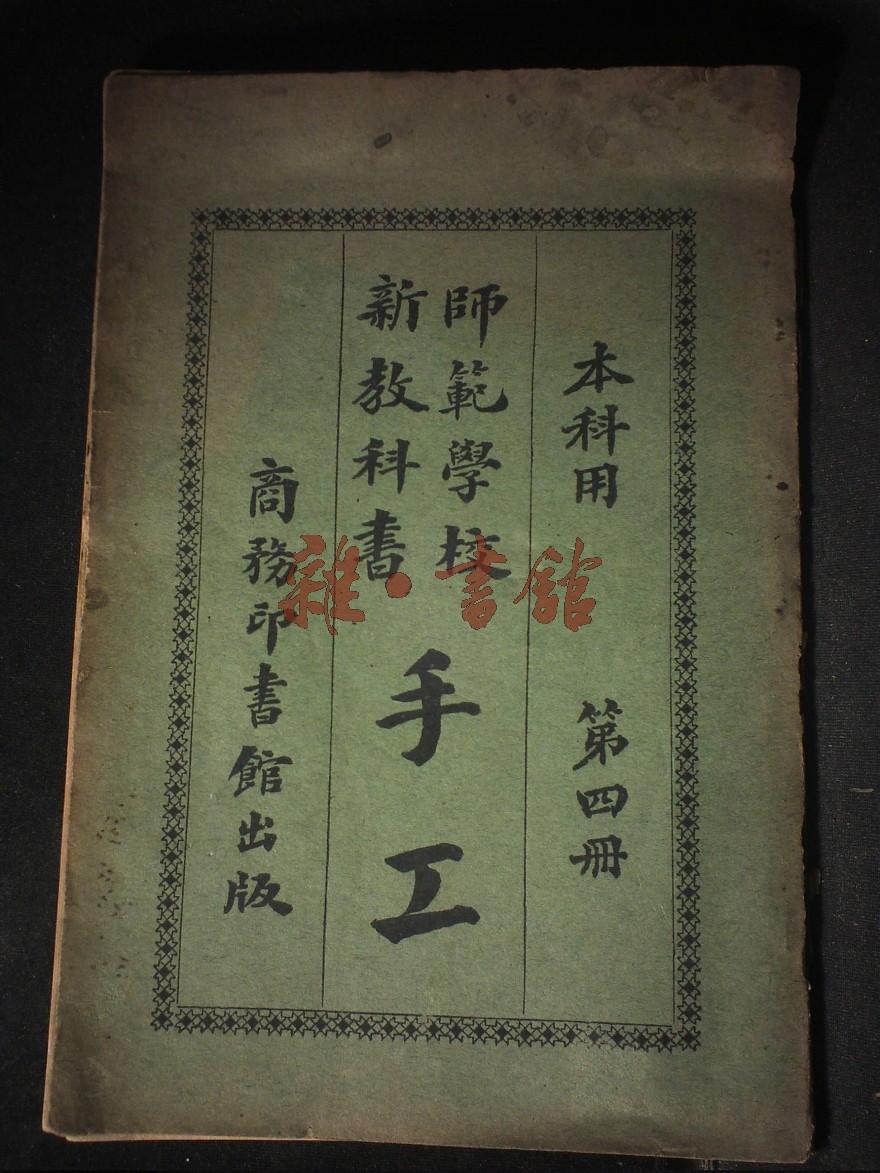 本科用 第四冊
師範學校
新教科書
手工
商務印書館出版
雜·書館